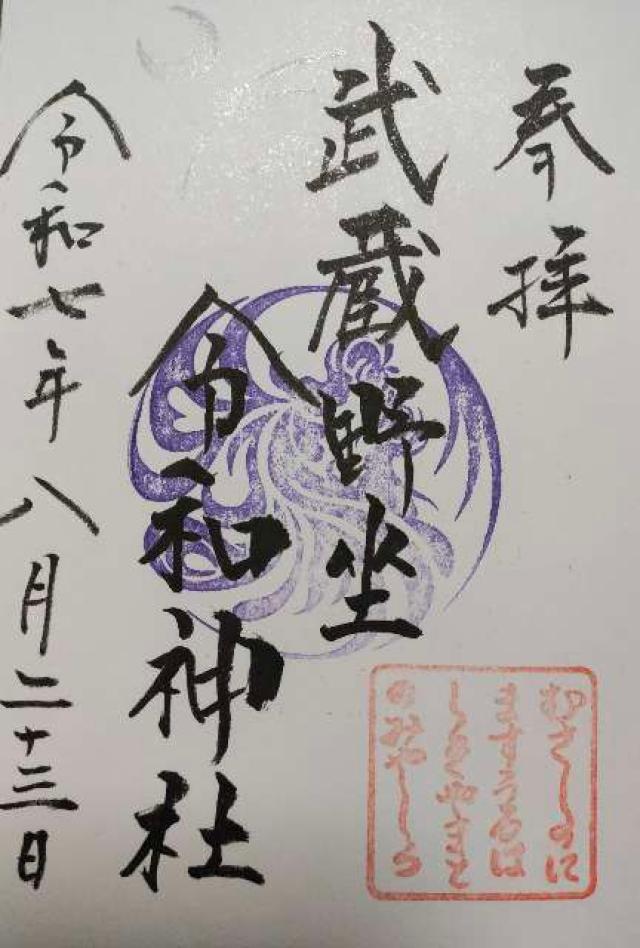 奉拝
武蔵野坐
令和神社
令和七年八月二十三日
むさしのに
ますうるは
しきやまと
のみやしろ